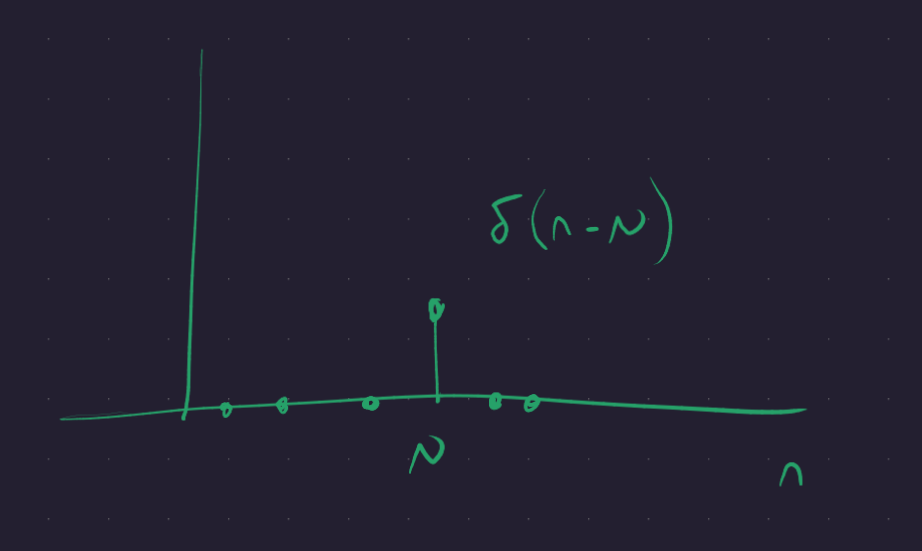 δ(n-N)
N
n